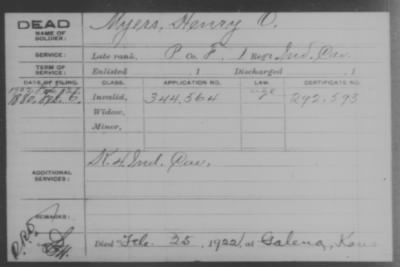 DEAD
NAME OF SOLDIER: Myers, Henry O.
SERVICE: Late rank, P Co. F, 1 Reg't Ind. Cav.
TERM OF SERVICE: Enlisted 1 Discharged , 1
DATE OF FILING. CLASS. APPLICATION NO. LAW. CERTIFICATE NO.
1880, Feb. 6. Invalid, 344,564 292,593
Widow,
Minor,
ADDITIONAL SERVICES: K 4 Ind. Cav.
REMARKS:
Died Feb. 25, 1922, at Galena, Kans